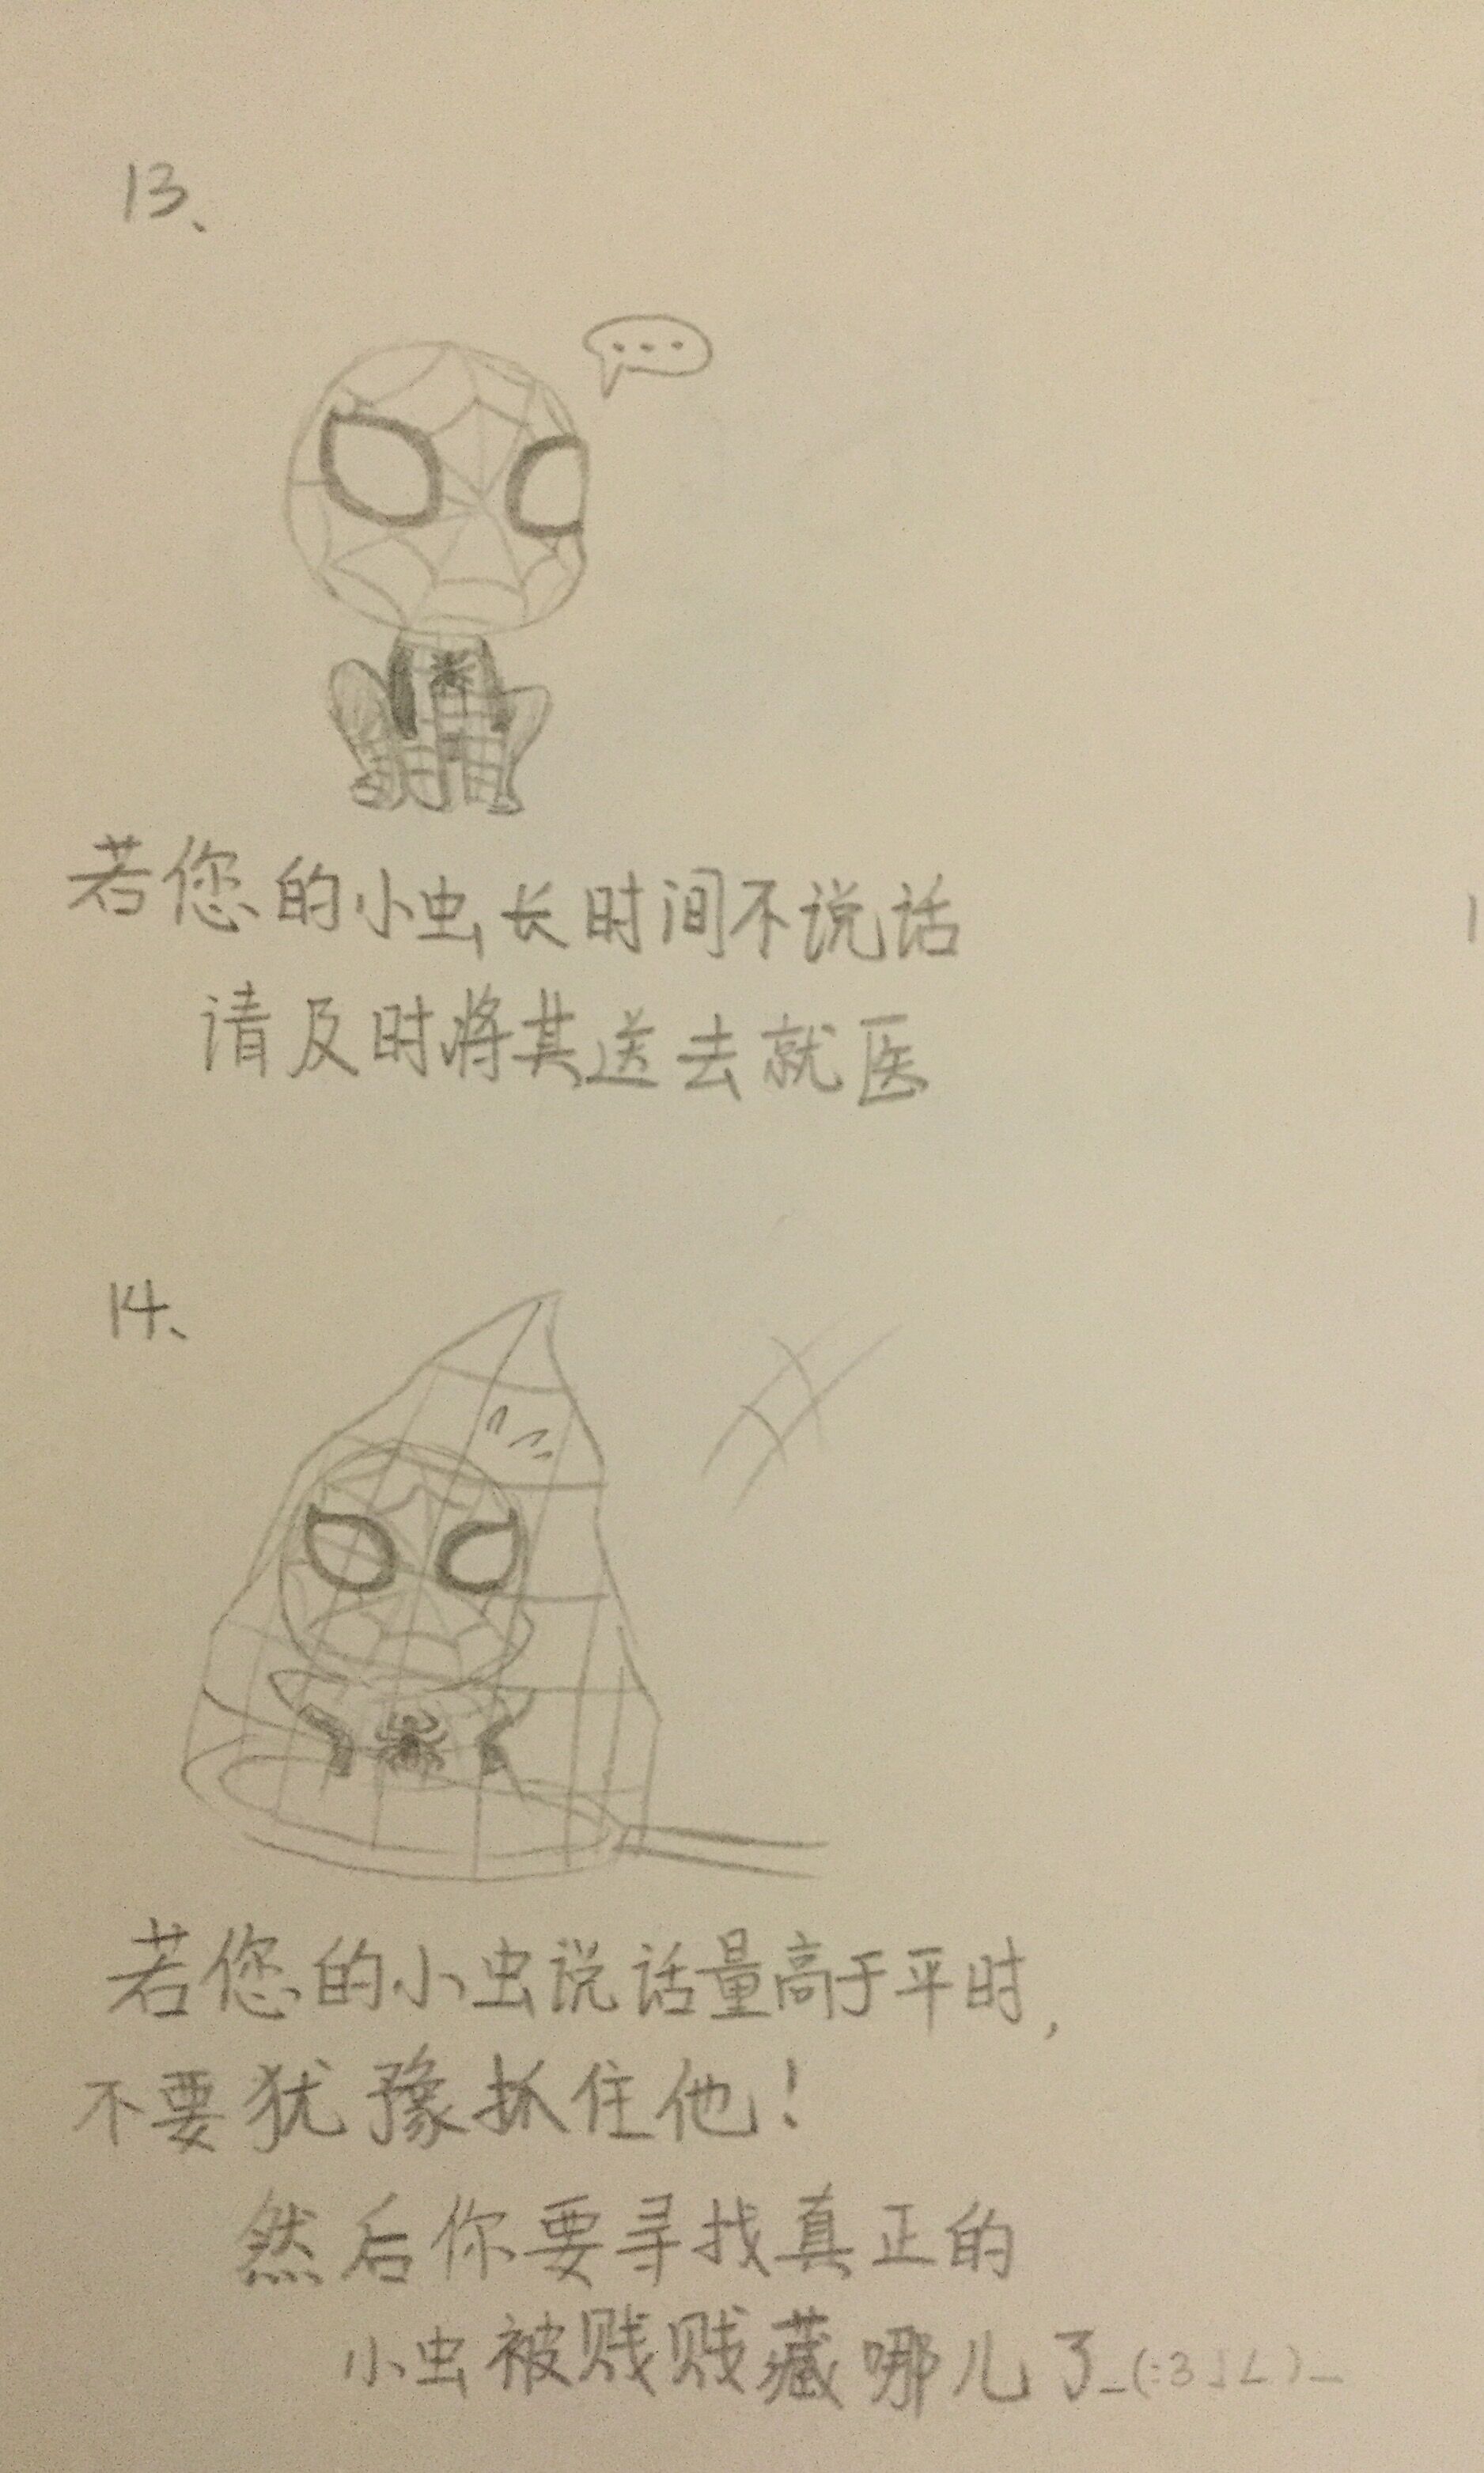 13、
...
若您的小虫长时间不说话
请及时将其送去就医
14、
若您的小虫说话量高于平时，
不要犹豫抓住他！
然后你要寻找真正的
小虫被贱贱藏哪儿了_(:3」∠)_